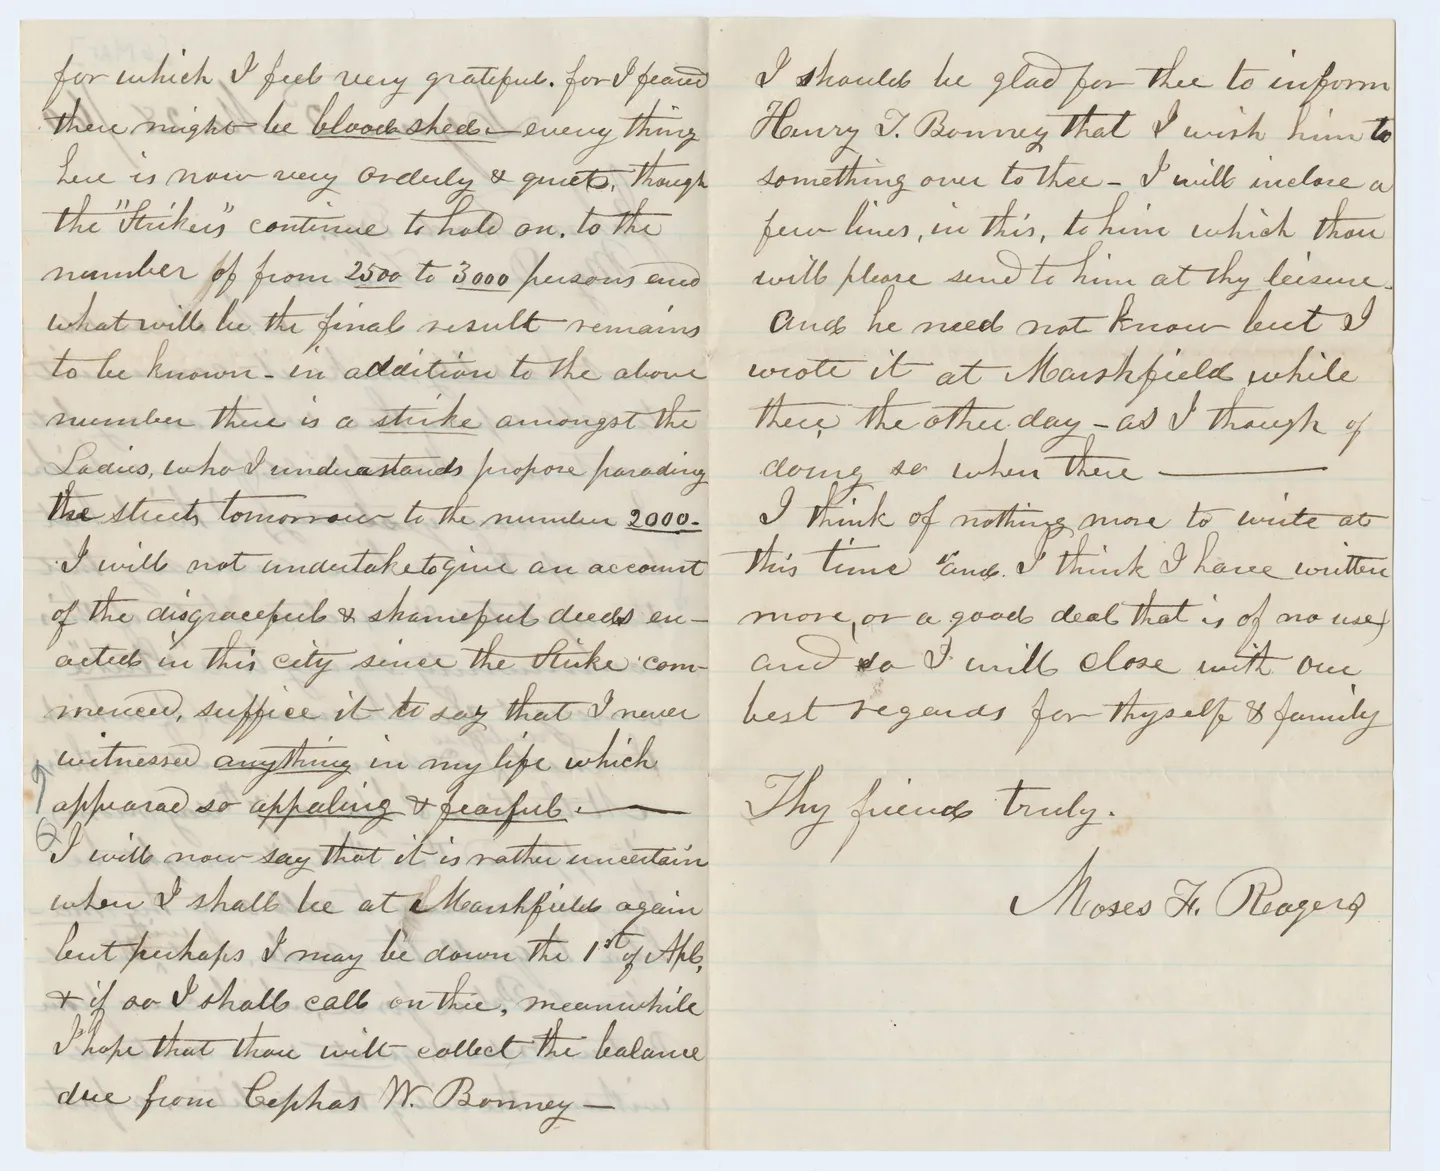 for which I feel very grateful. for I feared
there might be blood shed — every thing
here is now very orderly & quiet, though
the "Strikers" continue to hold on. to the
number of from 2500 to 3000 persons and
what will be the final result remains
to be known - in addition to the above
number there is a strike amongst the
Ladies, who I understands propose parading
the streets tomorrow to the number 2000-
I will not undertake to give an account
of the disgraceful & shameful deeds en-
acted in this city since the Strike com-
menced, suffice it to say that I never
witnessed anything in my life which
appearad so appaling & fearful. —
I will now say that it is rather uncertain
when I shall be at Marshfield again
but perhaps I may be down the 1st of Apl,
& if so I shall call on thee, meanwhile
I hope that thou will collect the balance
due from Cephas W. Bonney —
I should be glad for thee to inform
Henry T. Bonney that I wish him to
something over to thee - I will inclose a
few lines, in this, to him which thou
will please send to him at thy leisure.
And he need not know but I
wrote it at Marshfield while
there, the other day - as I though of
doing so when there —
I think of nothing more to write at
this time "and. I think I have written
more, or a good deal that is of no use)
and so I will close with our
best regards for thyself & family
Thy friend truly.
Moses F. Rogers